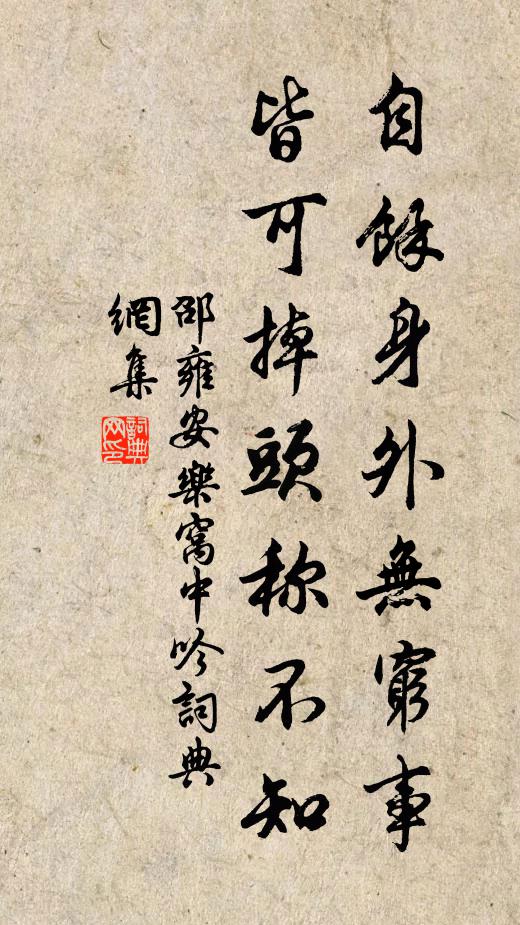 自餘身外無窮事
皆可掉頭称不知
邵雍安樂窩中吟詞典
網集
詞典
网印